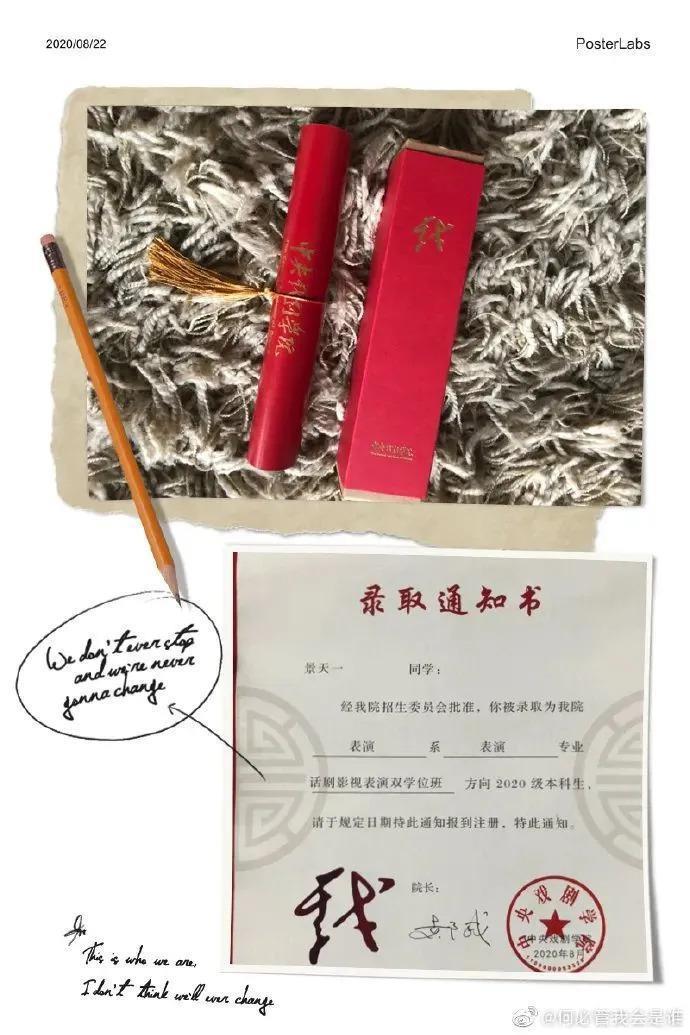 2020/08/22
PosterLabs
中央戏剧学院
戏
We don't ever stop
and we're never
gonna change
录取通知书
景天一 同学：
经我院招生委员会批准，你被录取为我院
表演 系 表演 专业
话剧影视表演双学位班 方向 2020 级本科生，
请于规定日期持此通知报到注册，特此通知。
戏
院长：
中央戏剧学院
中央戏剧学院
2020年8月
This is who we are,
I don't think we'll ever change
@何必管我会是谁